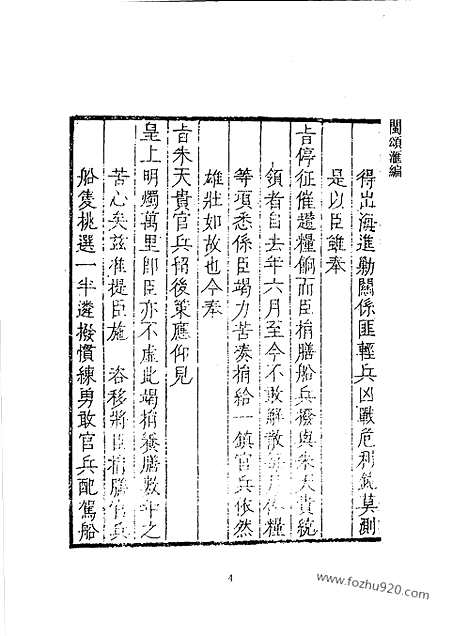 閩頌滙編
得出海進勦關係匪輕兵凶戰危利鈍莫測
是以臣雖奉
旨停征催趲糧餉而臣捐膳船兵撥與朱天貴統
領者自去年六月至今不敢解散月糧
等項悉係臣竭力苦湊捐給一鎮官兵依然
雄壯如故也今奉
旨朱天貴官兵留後策應仰見
皇上明燭萬里即臣亦不虛此竭捐養膳數年之
苦心矣茲准提臣施 咨移將臣捐膳官兵
船隻挑選一半遴撥慣練勇敢官兵配駕船
4
www.fozhu920.com